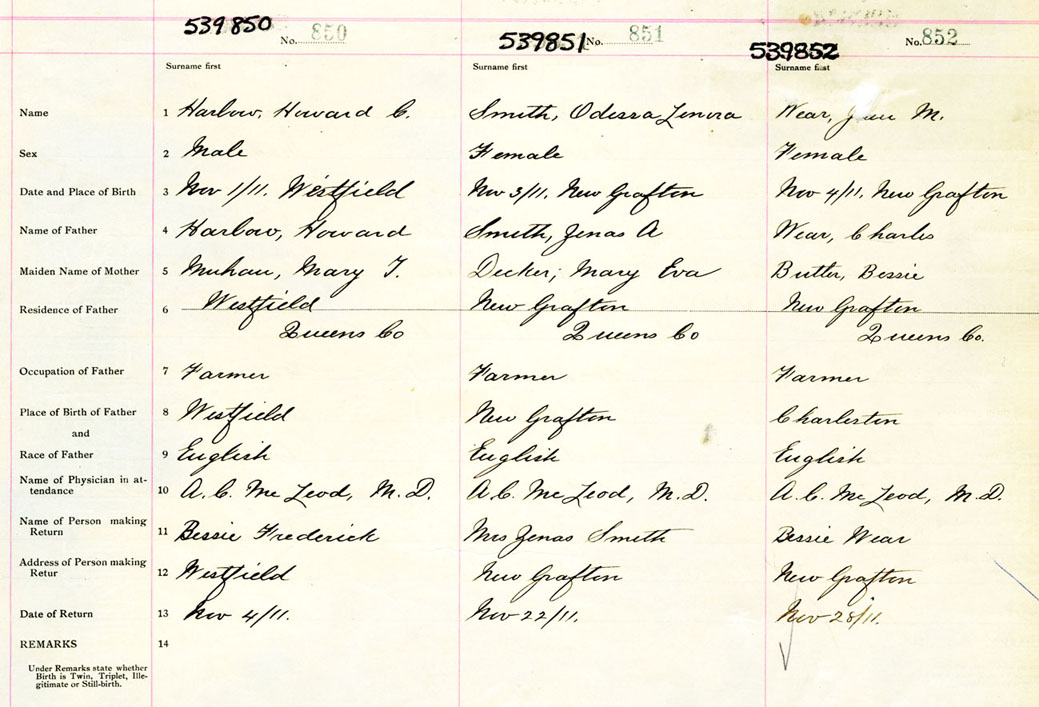 539850 No. 850 539851 No. 851 539852 No. 852
Surname first Surname first Surname first
Name 1 Harlow, Howard C. Smith, Odessa Lenora Wear, M.
Sex 2 Male Female Female
Date and Place of Birth 3 Nov 1/11. Westfield Nov 3/11, New Grafton Nov 4/11, New Grafton
Name of Father 4 Harlow, Howard Smith, Zenas A Wear, Charles
Maiden Name of Mother 5 Mary T. Decker, Mary Eva Butler, Bessie
Residence of Father 6 Westfield New Grafton New Grafton
Queens Co Queens Co Queens Co.
Occupation of Father 7 Farmer Farmer Farmer
Place of Birth of Father 8 Westfield New Grafton Charleston
and
Race of Father 9 English English English
Name of Physician in at-
tendance 10 A. C. McLeod, M.D. A. C. McLeod, M.D. A. C. McLeod, M.D.
Name of Person making
Return 11 Bessie Frederick Mrs Zenas Smith Bessie Wear
Address of Person making
Retur 12 Westfield New Grafton New Grafton
Date of Return 13 Nov 4/11. Nov 22/11. Nov 28/11.
REMARKS 14
Under Remarks state whether
Birth is Twin, Triplet, Ille-
gitimate or Still-birth.